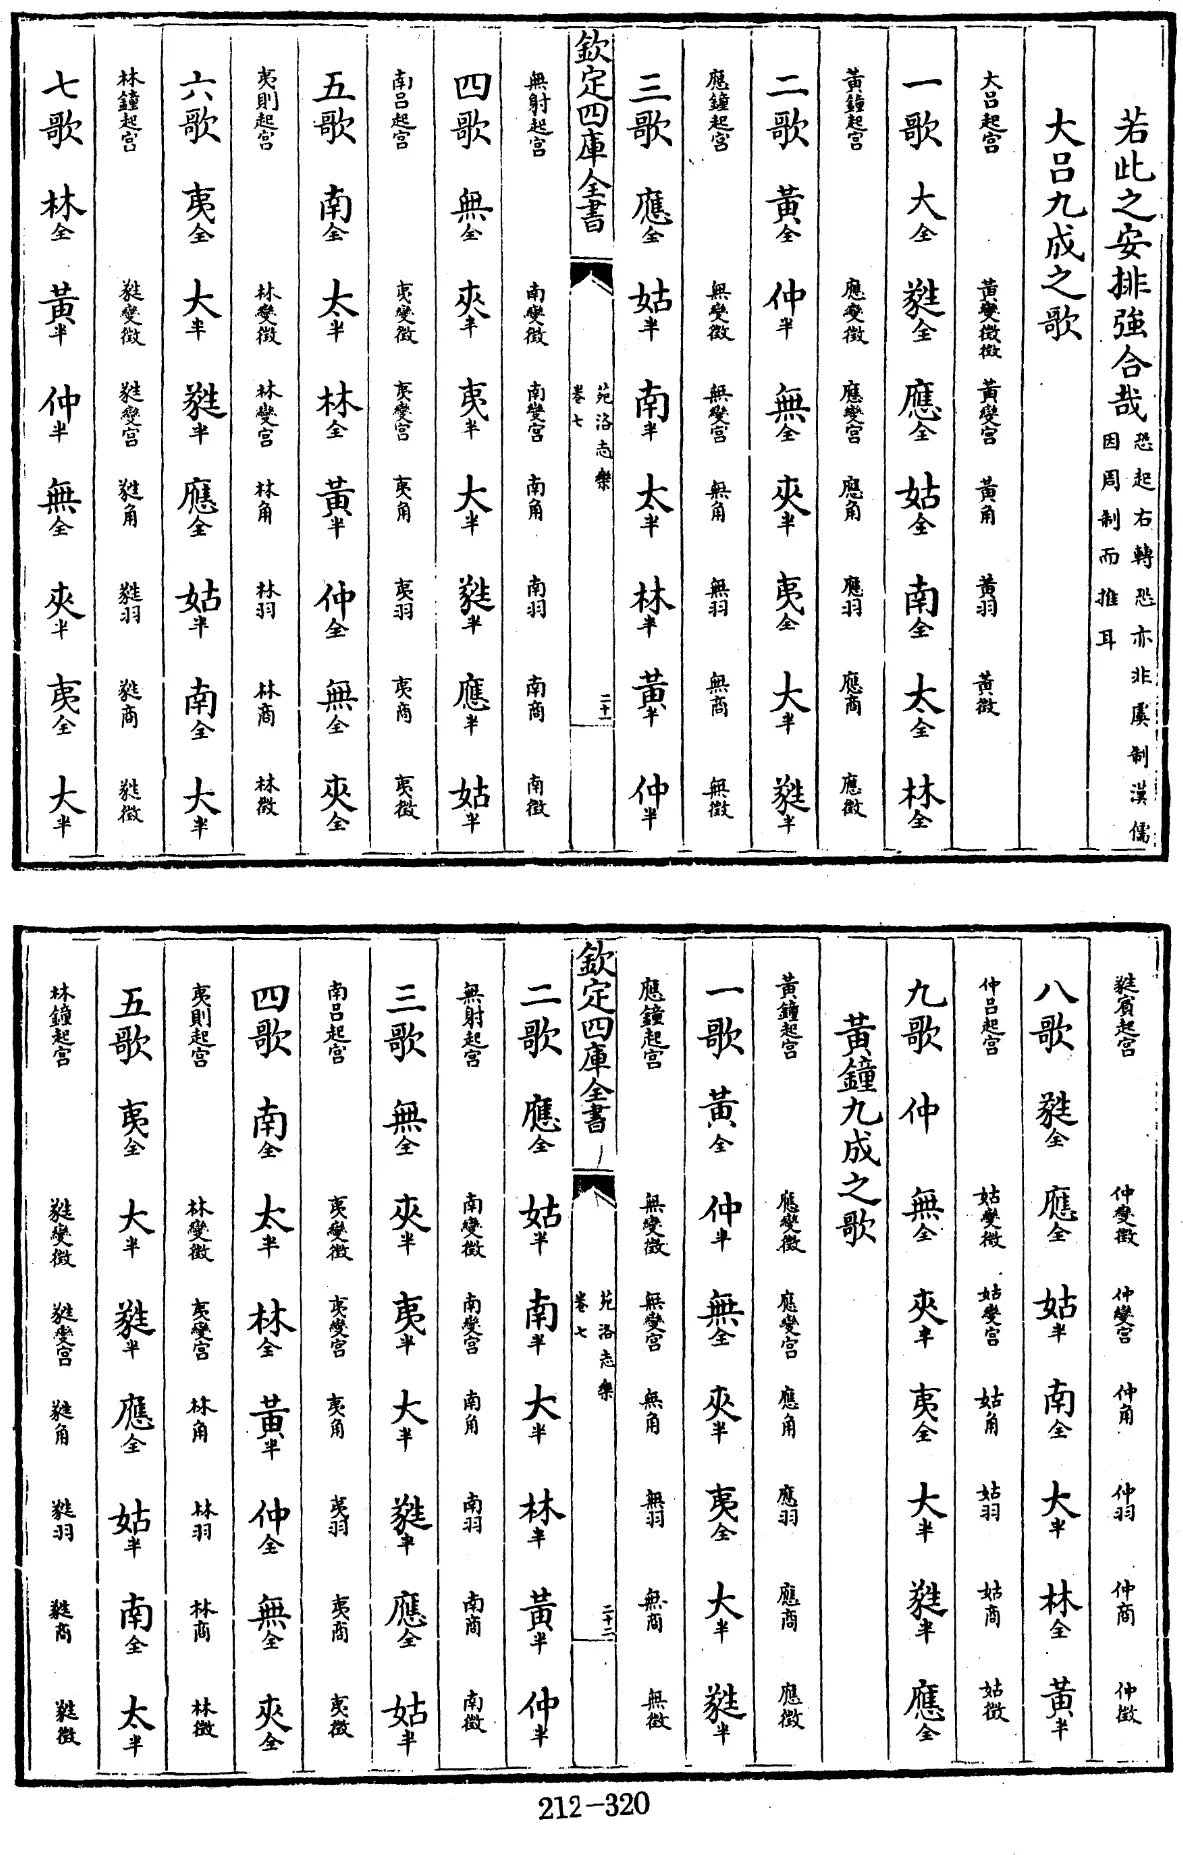 若此之安排強合哉恐起右轉恐亦非虞制漢儒
因周制而推耳
大呂九成之歌
大呂起宮 黃變徵徵 黃變宮 黃角 黃羽 黃徵
一歌 大全 蕤全 應全 姑全 南全 太全 林全
黃鐘起宮 應變徵 應變宮 應角 應羽 應商 應徵
二歌 黃全 仲半 無全 夾半 夷全 大半 蕤半
應鐘起宮 無變徵 無變宮 無角 無羽 無商 無徵
三歌 應全 姑半 南半 太半 林半 黃半 仲半
欽定四庫全書 苑洛志樂 卷七 二十一
無射起宮 南變徵 南變宮 南角 南羽 南商 南徵
四歌 無全 夾半 夷半 大半 蕤半 應半 姑半
南呂起宮 夷變徵 夷變宮 夷角 夷羽 夷商 夷徵
五歌 南全 太半 林全 黃半 仲全 無全 夾全
夷則起宮 林變徵 林變宮 林角 林羽 林商 林徵
六歌 夷全 大半 蕤半 應全 姑半 南全 大半
林鐘起宮 蕤變徵 蕤變宮 蕤角 蕤羽 蕤商 蕤徵
七歌 林全 黃半 仲半 無全 夾半 夷全 大半
蕤賓起宮 仲變徵 仲變宮 仲角 仲羽 仲商 仲徵
八歌 蕤全 應全 姑半 南全 大半 林全 黃半
仲呂起宮 姑變徵 姑變宮 姑角 姑羽 姑商 姑徵
九歌 仲 無全 夾半 夷全 大半 蕤半 應全
黃鐘九成之歌
黃鐘起宮 應變徵 應變宮 應角 應羽 應商 應徵
一歌 黃全 仲半 無全 夾半 夷全 大半 蕤半
應鐘起宮 無變徵 無變宮 無角 無羽 無商 無徵
二歌 應全 姑半 南半 大半 林半 黃半 仲半
欽定四庫全書 苑洛志樂 卷七 二十二
無射起宮 南變徵 南變宮 南角 南羽 南商 南徵
三歌 無全 夾半 夷半 大半 蕤半 應全 姑半
南呂起宮 夷變徵 夷變宮 夷角 夷羽 夷商 夷徵
四歌 南全 太半 林全 黃半 仲全 無全 夾全
夷則起宮 林變徵 夷變宮 林角 林羽 林商 林徵
五歌 夷全 大半 蕤半 應全 姑半 南全 太半
林鐘起宮 蕤變徵 蕤變宮 蕤角 蕤羽 蕤商 蕤徵
212-320